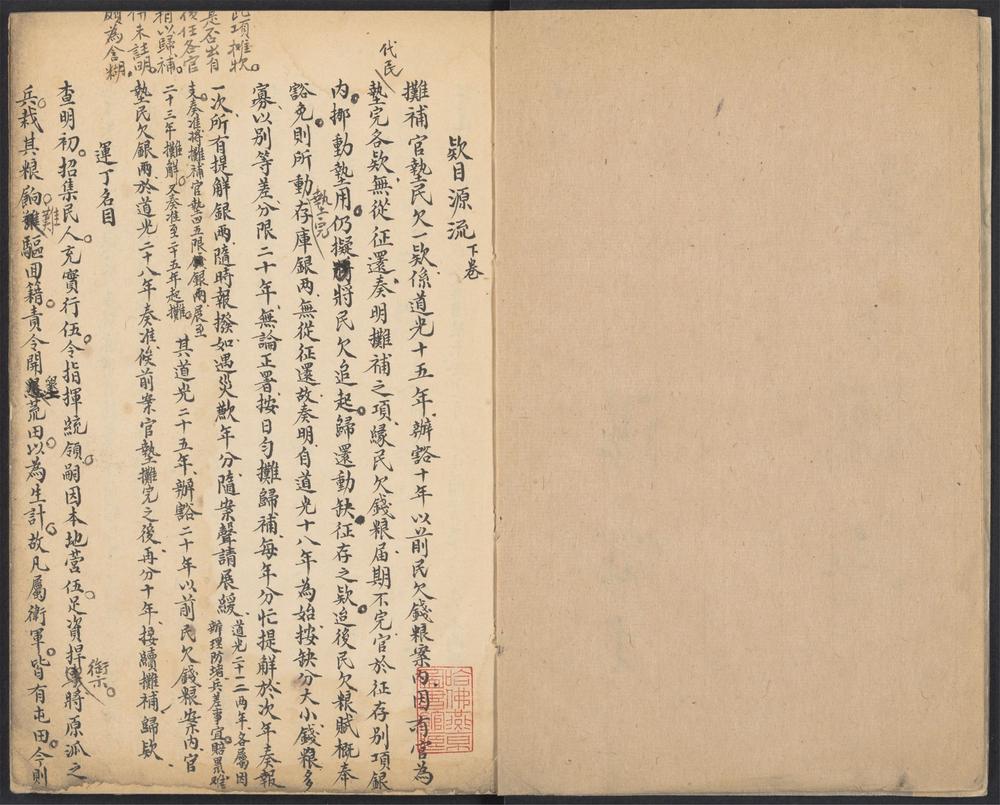 欵目源流 下卷
攤補官墊民欠一欵係道光十五年辦豁十年以前民欠錢粮案內因有官為
代民
墊完各欵無從征還奏明攤補之項緣民欠錢粮届期不完官於征存別項銀
內挪動墊用仍擬將民欠追起歸還動缺征存之欵迨後民欠粮賦概奉
豁免則所動存庫銀兩無從征還故奏明自道光十八年為始按缺分大小錢粮多
墊完
寡以別等差分限二十年無論正署按日勻攤歸補每年分忙提解於次年奏報
一次所有提解銀兩隨時報撥如遇災歉年分隨案聲請展緩道光二十一二兩年各屬因
辦理防堵兵差事宜賠累
支奏准將攤補官墊四五限銀兩展至
二十三年攤解又奏准至二十五年起攤
其道光二十五年辦豁二十年以前民欠錢粮案內官
墊民欠銀兩於道光二十八年奏准俟前案官墊攤完之後再分十年接續攤補歸欵
此項攤欵
是否出有
後任各官
稍以歸補
併未註明
頗為含糊
運丁名目
查明初招集民人充實行伍令指揮統領嗣因本地營伍足資捍衛將原派之
兵裁其粮餉驅回籍責令開墾荒田以為生計故凡屬衛軍皆有屯田今則